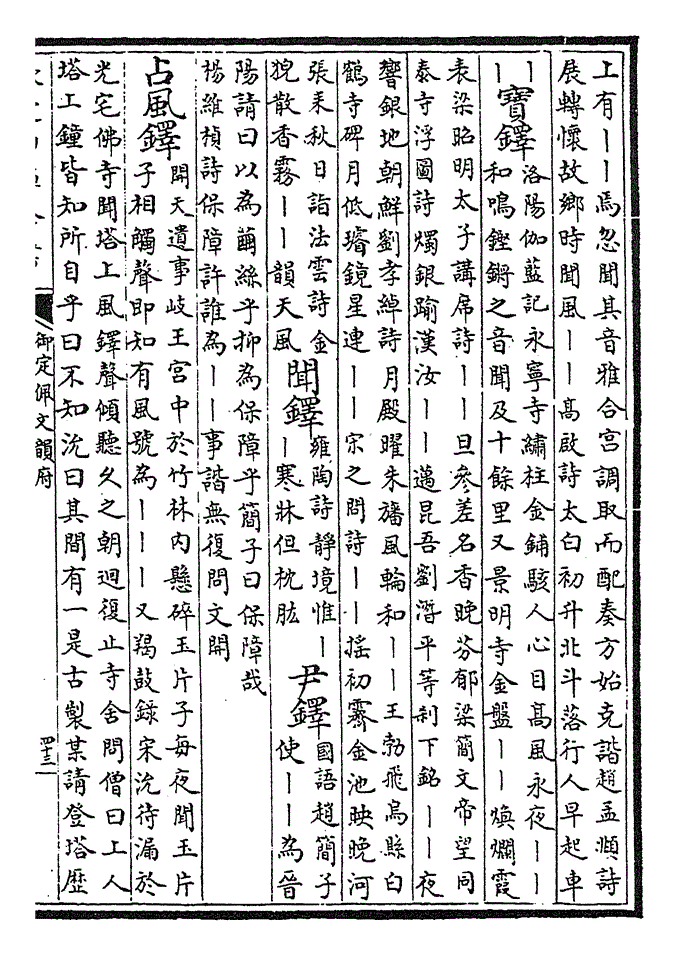 上有――焉忽聞其音雅合宮調取而配奏方始克諧趙孟頫詩
展轉懷故鄉時聞風――高啟詩太白初升北斗落行人早起車
――
寶鐸
洛陽伽藍記永寧寺繡柱金鋪駭人心目高風永夜――
和鳴鏗鏘之音聞及十餘里又景明寺金盤――煥爛霞
表梁昭明太子講席詩――旦參差名香晚芬郁梁簡文帝望同
泰寺浮圖詩燭銀踰漢汝――邁昆吾劉潛平等剎下銘――夜
響銀地朝鮮劉孝綽詩月殿曜朱旛風輪和――王勃飛烏縣白
鶴寺碑月低璿鏡星連――宋之問詩――搖初霽金池映晚河
張耒秋日詣法雲詩金
猊散香霧――韻天風
聞鐸
雍陶詩靜境惟―
―寒牀但枕肱
尹鐸
國語趙簡子
使――為晉
陽請曰以為繭絲乎抑為保障乎簡子曰保障哉
楊維楨詩保障許誰為――事諧無復問文開
占風鐸
開天遺事岐王宮中於竹林內懸碎玉片子每夜聞玉片
子相觸聲即知有風號為―――又羯鼓錄宋沇待漏於
光宅佛寺聞塔上風鐸聲傾聽久之朝迴復止寺舍問僧曰上人
塔工鐘皆知所自乎曰不知沇曰其間有一是古製某請登塔歷
御定佩文韻府
四十三